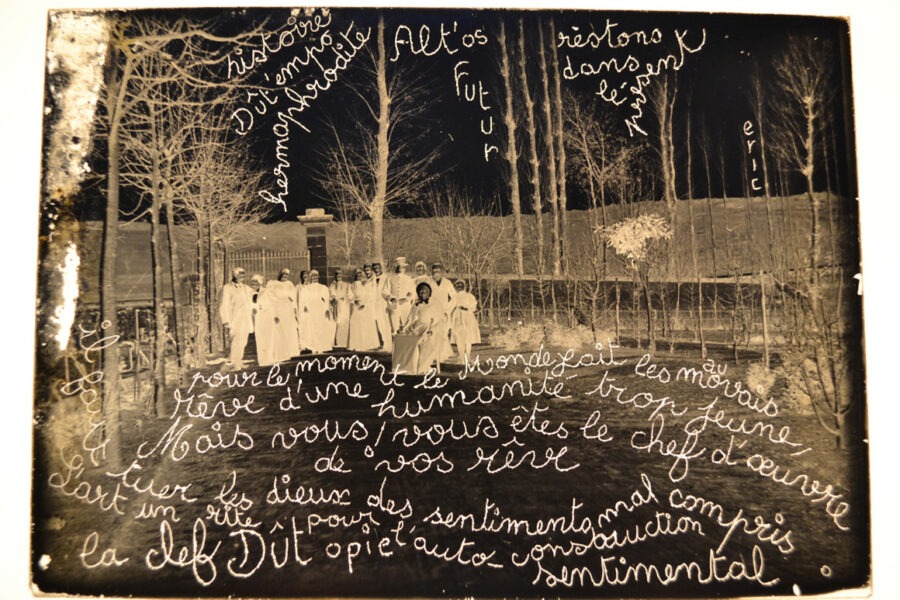 histoire
Dût'empo
hermaphrodite
Alt'os
Futur
restons
dans
le
présent
eric
pour le moment le Monde fait les mauvais
rêve d'une humanité trop jeune,
Mais vous, vous êtes le chef d'œuvre
de vos rêve
il faut
tuer les dieux des sentiments mal compris
L'art un rite pour l'auto-
la clef Dût opie
sentimental